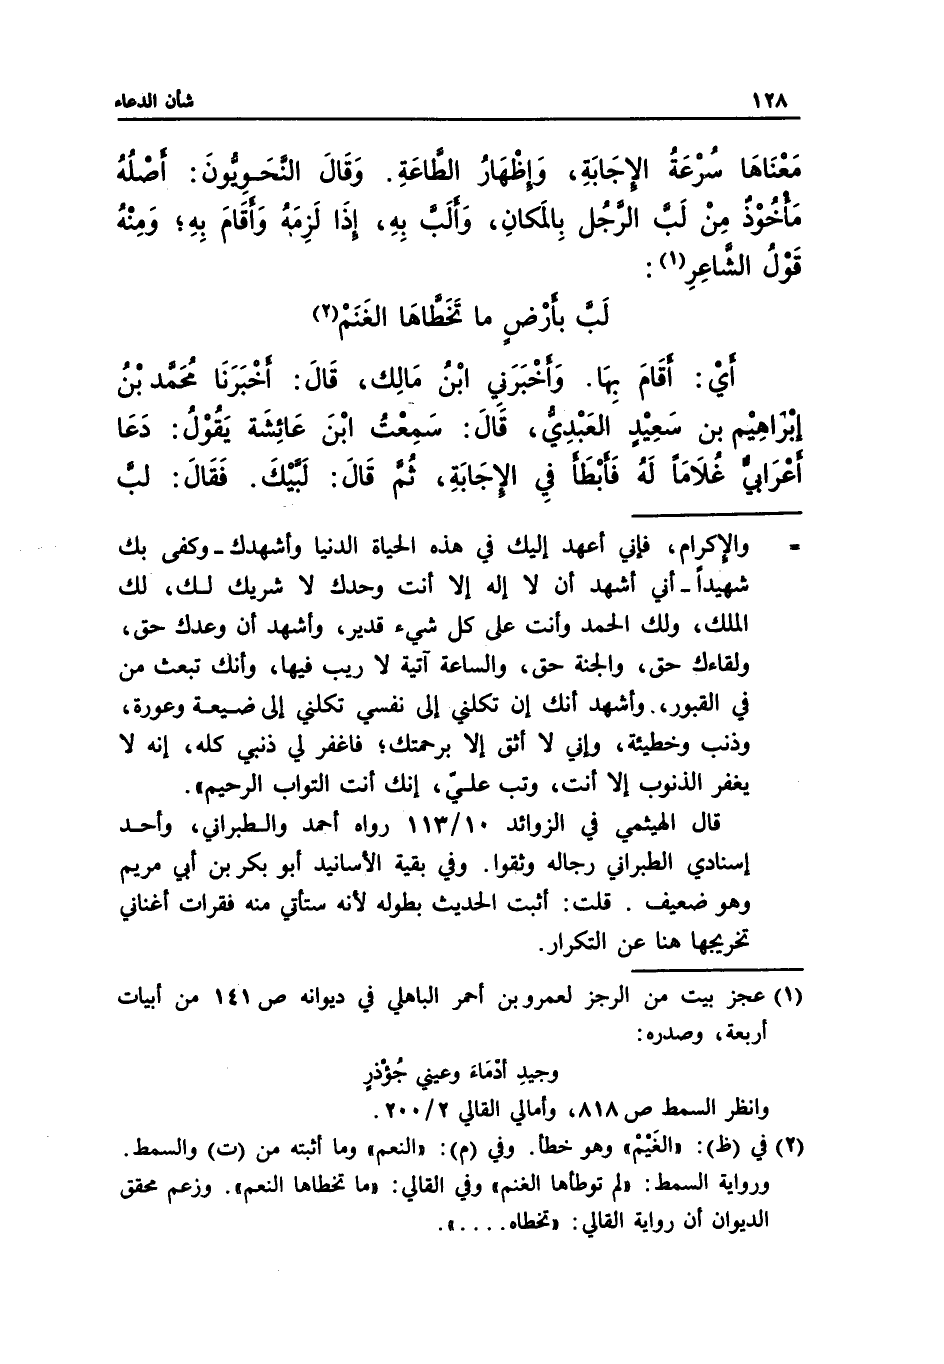 ١٢٨ شأن الدعاء
مَعْنَاهَا سُرْعَةُ الإِجَابَةِ، وَإِظْهَارُ الطَّاعَةِ. وَقَالَ النَّحَوِيُّونَ: أَصْلُهُ
مَأْخُوْذٌ مِنْ لَبَّ الرَّجُلِ بِالمَكانِ، وَأَلَبَّ بِهِ، إِذَا لَزِمَهُ وَأَقَامَ بِهِ؛ وَمِنْهُ
قَوْلُ الشَّاعِرِ(١):
لَبَّ بأَرْضٍ ما تَخَطَّاهَا الغَنَمْ(٢)
أَيْ: أَقَامَ بِهَا. وَأَخْبَرَنِي ابْنُ مَالِك، قَالَ: أَخْبَرَنَا مُحَمَّد بْنُ
إِبْرَاهِيْم بن سَعِيْدٍ العَبْدِيُّ، قَالَ: سَمِعْتُ ابْنَ عَائِشَة يَقُوْلُ: دَعَا
أَعْرَابيٌّ غُلَامَاً لَهُ فَأَبْطَأَ فِي الإِجَابَةِ، ثُمَّ قَالَ: لَبَّيْكَ. فَقَالَ: لبَّ
= والإكرام، فإني أعهد إليك في هذه الحياة الدنيا وأشهدك ـ وكفى بك
شهيداً ـ أني أشهد أن لا إله إلا أنت وحدك لا شريك لـك، لك
الملك، ولك الحمد وأنت على كل شيء قدير، وأشهد أن وعدك حق،
ولقاءك حق، والجنة حق، والساعة آتية لا ريب فيها، وأنك تبعث من
في القبور، وأشهد أنك إن تكلني إلى نفسي تكلني إلى ضـيعـة وعورة،
وذنب وخطيئة، وإني لا أثق إلا برحمتك؛ فاغفر لي ذنبي كله، إنه لا
يغفر الذنوب إلا أنت، وتب علـيّ، إنك أنت التواب الرحيم».
قال الهيثمي في الزوائد ١١٣/١٠ رواه أحمد والـطبراني، وأحـد
إسنادي الطبراني رجاله وثقوا. وفي بقية الأسانيد أبو بكر بن أبي مريم
وهو ضعيف . قلت: أثبت الحديث بطوله لأنه ستأتي منه فقرات أغناني
تخريجها هنا عن التكرار.
(١) عجز بيت من الرجز لعمرو بن أحمر الباهلي في ديوانه ص ١٤١ من أبيات
أربعة، وصدره:
وجيدِ أدْمَاءَ وعيني جُؤْذرٍ
وانظر السمط ص ٨١٨، وأمالي القالي ٢٠٠/٢.
(٢) في (ظ): «الغَيْمْ» وهو خطأ. وفي (م): «النعم» وما أثبته من (ت) والسمط.
ورواية السمط: «لم توطأها الغنم» وفي القالي: «ما تخطاها النعم». وزعم محقق
الديوان أن رواية القالي: «تخطاه. . . .».